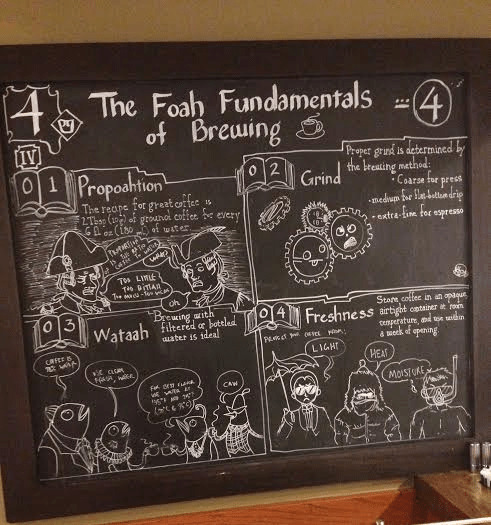 4
pg
IV
The Foah Fundamentals
of Brewing
= 4
01
Propoahtion
The recipe for great coffee is
2 Tbsp (10g) of ground coffee for every
6 fl oz (180 mL) of water.
Too little
too bittah
too weak
Oh
02
Grind
Proper grind is determined by
the brewing method:
• Coarse for press
- medium for flat-bottom drip
- extra-fine for espresso
03
Wataah
Brewing with
filtered or bottled
water is ideal
Coffee is
98% watah
Use clean
fresh watah
For best flavor
use water at
195°F and 205°F
Caw
04
Freshness
Store coffee in an opaque,
airtight container at room
temperature, and use within
a week of opening.
Protect your coffee from:
Light
Heat
Moisture